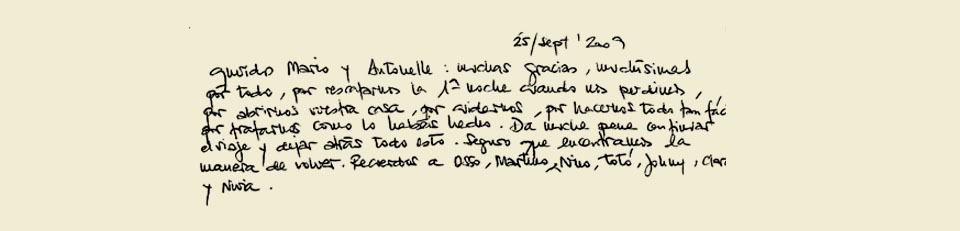 25/sept '2009
Queridos Mario y Antonella : muchas gracias, muchísimas
por todo, por rescatarnos la 1ª noche cuando nos perdimos,
por abrirnos vuestra casa, por cuidarnos, por hacernos todo tan fác
por tratarnos como lo habéis hecho. Da mucha pena continuar
el viaje y dejar atrás todo esto. Seguro que encontramos la
manera de volver. Recuerdos a Osso, Martino, Nino, Totó, Johny, Clar
y Nivia.